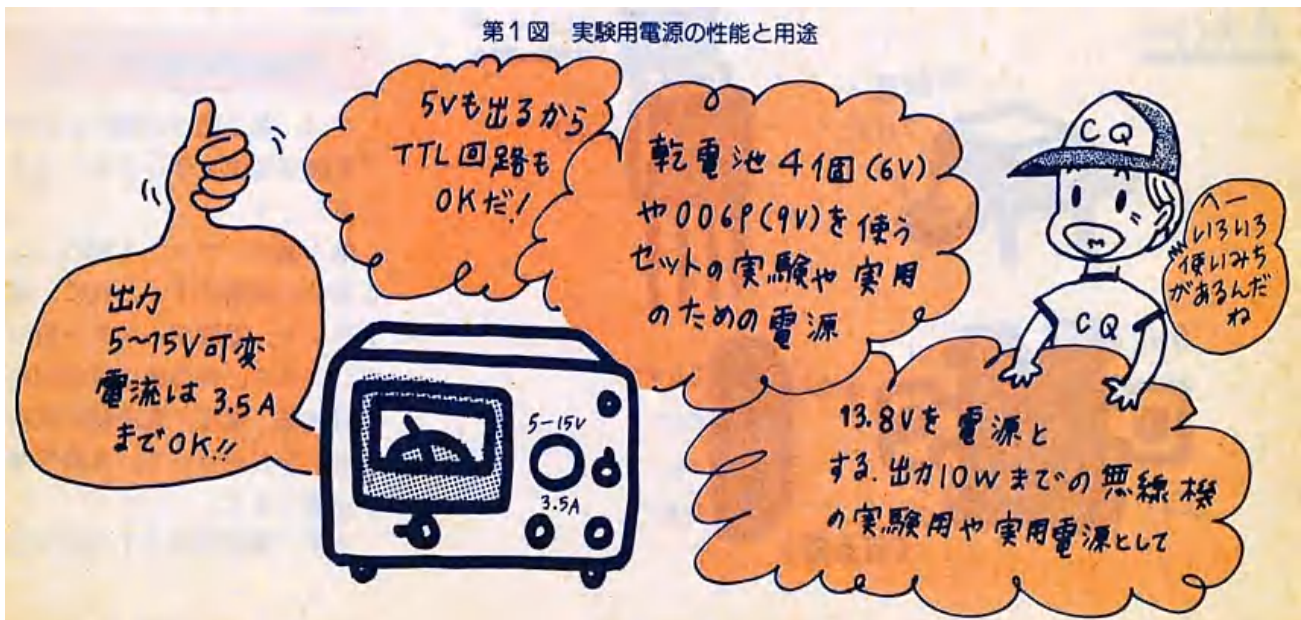 第1図 実験用電源の性能と用途
出力
5~15V可変
電流は 3.5A
までOK!!
5Vも出るから
TTL回路も
OKだ!
乾電池4個(6V)
や006P(9V)を使う
セットの実験や実用
のための電源
CQ
CQ
へー
いろいろ
使いみち
があるんだ
ね
5-15V
3.5A
13.8Vを電源と
する.出力10Wまでの無線機
の実験用や実用電源として